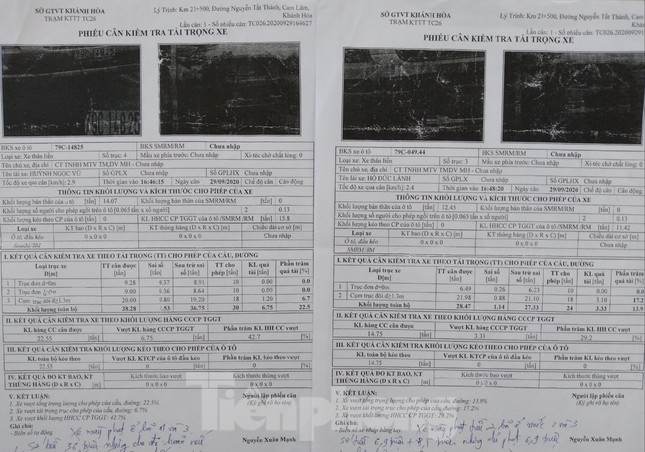 SỞ GTVT KHÁNH HÒA
TRẠM KTTT TC26
Lý Trình: Km 21+500, Đường Nguyễn Tất Thành, Cam Lâm,
Khánh Hòa
Lần cân: 1 - Số nhiều cân: TC026.20200929164627
PHIẾU CÂN KIỂM TRA TẢI TRỌNG XE
BKS xe ô tô 79C-14825 BKS SMRM/RM Chưa nhập
Loại xe: Xe thân liền Số trục: 4 Mẫu xe phía trước: Chưa nhập Xi téc chở chất lỏng: 0
Tên chủ xe, địa chỉ CT TNHH MTV TM,DV MH - Chưa nhập
Tên lái xe: HUỲNH NGỌC VŨ Số GPLX Chưa nhập Số GPLHX Chưa nhập
Tốc độ xe qua cân[km/h]: 2.9 Thời gian vào 16:46:15 Ngày cân 29/09/2020 Chế độ cân Cân động
THÔNG TIN KHỐI LƯỢNG VÀ KÍCH THƯỚC CHO PHÉP CỦA XE
Khối lượng bản thân của ô tô [tấn] 14.07 Khối lượng bản thân của SMRM/RM [tấn] 0
Khối lượng số người cho phép ngồi trên ô tô[0.065 tấn x số người] 2 0.13
Khối lượng kéo theo CP của ô tô[tấn] 0 KL HHCC CP TGGT của ô tô /SMRM /RM 15.8
Loại xe KT bao (D x R x C) KT thùng hàng (D x R x C) Chiều dài cơ sở (m)
Ô tô, đầu kéo 0 x 0 x 0 0 x 0 x 0 Chưa nhập
SMRM/RM
I. KẾT QUẢ CÂN KIỂM TRA XE THEO TẢI TRỌNG (TT) CHO PHÉP CỦA CẦU, ĐƯỜNG
Loại trục xe D[m] TT cân được [tấn] Sai số [tấn] Sau trừ sai số [tấn] TT cho phép [tấn] KL quá tải [tấn] Phần trăm quá tải [%]
1 Trục đơn d=0m 9.28 0.37 8.91 10 0.0
2 Trục đơn 9.00 0.36 8.64 10 0.0
3 Cụm trục đôi d≥1.3m 20.00 0.80 19.20 18 1.2 6.7
Khối lượng toàn bộ 38.28 1.53 36.75 30 6.75 22.5
II. KẾT QUẢ CÂN KIỂM TRA XE THEO KHỐI LƯỢNG HÀNG CCCP TGGT
KL hàng CC cân được Vượt KL hàng CCCP TGGT Phần trăm KL HH CC vượt
22.55 [tấn] 6.75 [tấn] 42.7 [%]
III. KẾT QUẢ CÂN KIỂM TRA KHỐI LƯỢNG KÉO THEO CHO PHÉP CỦA Ô TÔ
KL toàn bộ kéo theo Vượt KL KTCP của ô tô đầu kéo Phần trăm KL kéo theo vượt
22.55 [tấn] 0 [tấn] 0 [%]
IV. KẾT QUẢ ĐO KT BAO, KT THÙNG HÀNG (D x R x C) [m] Kích thước bao vượt Kích thước thùng vượt
0 x 0 x 0 0 x 0 x 0
V. KẾT LUẬN: Người lập phiếu cân
1. Xe vượt tổng trọng lượng cho phép của cầu, đường: 22.5% (Ký ghi rõ họ tên)
2. Xe vượt tải trọng trục cho phép của cầu, đường: 6.7%
3. Xe vượt khối lượng HHCC CP TGGT: 42.7%
Ghi chú:
Nguyễn Xuân Mạnh
SỞ GTVT KHÁNH HÒA
TRẠM KTTT TC26
Lý Trình: Km 21+500, Đường Nguyễn Tất Thành, Cam Lâm,
Khánh Hòa
PHIẾU CÂN KIỂM TRA TẢI TRỌNG XE
BKS xe ô tô 79C-049.44 BKS SMRM/RM Chưa nhập
Loại xe: Xe thân liền Số trục: 3 Mẫu xe phía trước: Chưa nhập Xi téc chở chất lỏng: 0
Tên chủ xe, địa chỉ CT TNHH MTV TM,DV MH - Chưa nhập
Tên lái xe: HỒ ĐỨC LÀNH Số GPLX Chưa nhập Số GPLHX Chưa nhập
Tốc độ xe qua cân[km/h]: 2.4 Thời gian vào 16:48:20 Ngày cân 29/09/2020 Chế độ cân Cân động
THÔNG TIN KHỐI LƯỢNG VÀ KÍCH THƯỚC CHO PHÉP CỦA XE
Khối lượng bản thân của ô tô [tấn] 12.45 Khối lượng bản thân của SMRM/RM [tấn] 0
Khối lượng số người cho phép ngồi trên ô tô[0.065 tấn x số người] 2 0.13
Khối lượng kéo theo CP của ô tô[tấn] 0 KL HHCC CP TGGT của ô tô /SMRM /RM 11.42
Loại xe KT bao (D x R x C) KT thùng hàng (D x R x C) Chiều dài cơ sở (m)
Ô tô, đầu kéo 0 x 0 x 0 0 x 0 x 0 Chưa nhập
SMRM/RM
I. KẾT QUẢ CÂN KIỂM TRA XE THEO TẢI TRỌNG (TT) CHO PHÉP CỦA CẦU, ĐƯỜNG
Loại trục xe D[m] TT cân được [tấn] Sai số [tấn] Sau trừ sai số [tấn] TT cho phép [tấn] KL quá tải [tấn] Phần trăm quá tải [%]
1 Trục đơn d=0m 6.49 0.26 6.23 10 0.0
2 Cụm trục đôi d≥1.3m 21.98 0.88 21.10 18 3.10 17.2
Khối lượng toàn bộ 28.47 1.14 27.33 24 3.33 13.9
II. KẾT QUẢ CÂN KIỂM TRA XE THEO KHỐI LƯỢNG HÀNG CCCP TGGT
KL hàng CC cân được Vượt KL hàng CCCP TGGT Phần trăm KL HH CC vượt
14.75 [tấn] 3.33 [tấn] 29.2 [%]
III. KẾT QUẢ CÂN KIỂM TRA KHỐI LƯỢNG KÉO THEO CHO PHÉP CỦA Ô TÔ
KL toàn bộ kéo theo Vượt KL KTCP của ô tô đầu kéo Phần trăm KL kéo theo vượt
14.75 [tấn] 0 [tấn] 0 [%]
IV. KẾT QUẢ ĐO KT BAO, KT THÙNG HÀNG (D x R x C) [m] Kích thước bao vượt Kích thước thùng vượt
0 x 0 x 0 0 x 0 x 0
V. KẾT LUẬN: Người lập phiếu cân
1. Xe vượt tổng trọng lượng cho phép của cầu, đường: 13.9% (Ký ghi rõ họ tên)
2. Xe vượt tải trọng trục cho phép của cầu, đường: 17.2%
3. Xe vượt khối lượng HHCC CP TGGT: 29.2%
Ghi chú:
Nguyễn Xuân Mạnh